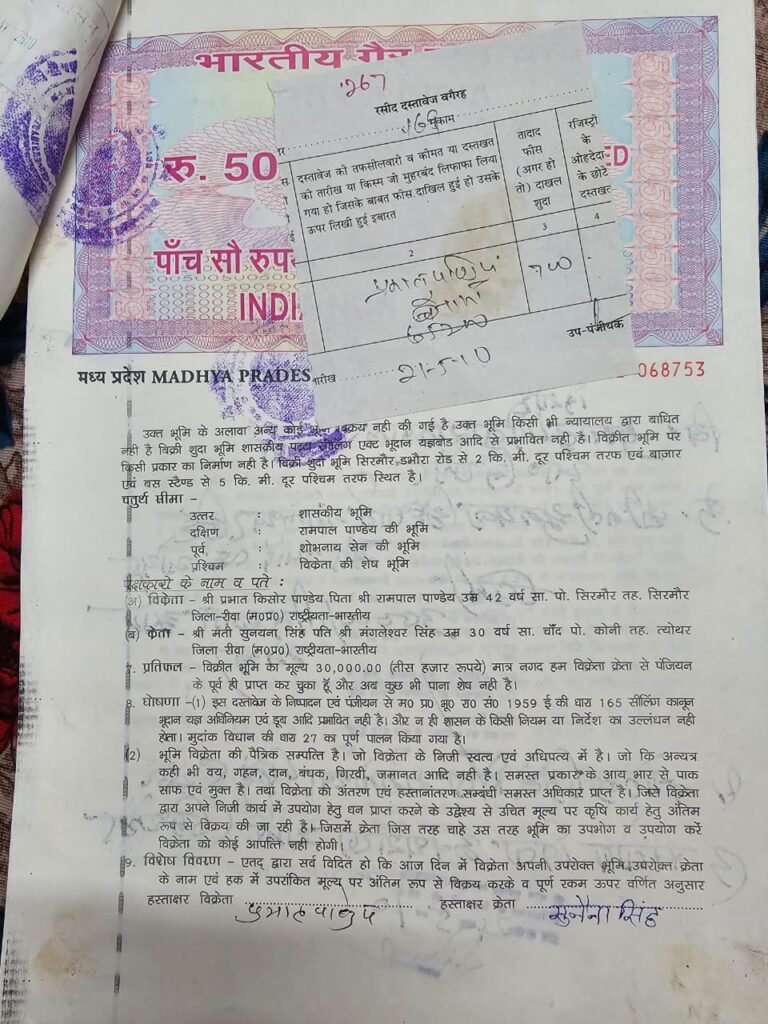 भारतीय गैर
रु. 50
पाँच सौ रुपए
INDI
ED
267
रसीद दस्तावेज वगैरह
मुकाम
दस्तावेज की तफसीलवारी व कीमत या दस्तखत
की तारीख या किस्म जो मुहरबंद लिफाफा लिया
गया हो जिसके बाबत फीस दाखिल हुई हो उसके
ऊपर लिखी हुई इबारत
तादाद
फीस
(अगर हो
तो) दाखल
शुदा
रजिस्ट्री
के
ओहदेदार
के छोटे
दस्तखत
2
3
4
700
उप-पंजीयक
तारीख 21-5-10
मध्य प्रदेश MADHYA PRADES
068753
उक्त भूमि के अलावा अन्य कोई विक्रय नही की गई है उक्त भूमि किसी भी न्यायालय द्वारा बाधित
नही है बिक्री शुदा भूमि शासकीय पट्टा सीलिंग एक्ट भूदान यज्ञबोड आदि से प्रभावित नही है। विक्रीत भूमि पर
किसी प्रकार का निर्माण नही है। बिक्री शुदा भूमि सिरमौर डभौरा रोड से 2 कि. मी. दूर पश्चिम तरफ एवं बाजार
एवं बस स्टैण्ड से 5 कि. मी. दूर पश्चिम तरफ स्थित है।
चतुर्थ सीमा -
उत्तर : शासकीय भूमि
दक्षिण : रामपाल पाण्डेय की भूमि
पूर्व, : शोभनाथ सेन की भूमि
प्रश्चिम : विक्रेता की शेष भूमि
पक्षकारो के नाम व पते :
(अ) विक्रेता - श्री प्रभात किसोर पाण्डेय पिता श्री रामपाल पाण्डेय उम्र 42 वर्ष सा. पो. सिरमौर तह. सिरमौर
जिला-रीवा (म०प्र०) राष्ट्रीयता-भारतीय
(ब) क्रेता - श्री मंती सुनयना सिंह पति श्री मंगलेश्वर सिंह उम्र 30 वर्ष सा. चाँद पो. कोनी तह. त्योथर
जिला रीवा (म०प्र०) राष्ट्रीयता-भारतीय
7. प्रतिफल - विक्रीत भूमि का मूल्य 30,000.00 (तीस हजार रूपये) मात्र नगद हम विक्रेता क्रेता से पंजियन
के पूर्व ही प्राप्त कर चुका हूँ और अब कुछ भी पाना शेष नही है।
8. घोषणा -(1) इस दस्तावेज के निष्पादन एवं पंजीयन से म० प्र० भू० रा० सं० 1959 ई की धारा 165 सीलिंग कानून
भूदान यज्ञ अधिनियम एवं डूब आदि प्रभावित नही है। और न ही शासन के किसी नियम या निर्देश का उल्लंधन नही
होता। मुदांक विधान की धारा 27 का पूर्ण पालन किया गया है।
(2) भूमि विक्रेता की पैत्रिक सम्पत्ति है। जो विक्रेता के निजी स्वत्व एवं अधिपत्य में है। जो कि अन्यत्र
कही भी वय, गहन, दान, बंधक, गिरवी, जमानत आदि नही है। समस्त प्रकार के आय भार से पाक
साफ एवं मुक्त है। तथा विक्रेता को अंतरण एवं हस्तानांतरण सम्बंधी समस्त अधिकार प्राप्त है। जिसे विक्रेता
द्वारा अपने निजी कार्य में उपयोग हेतु धन प्राप्त करने के उद्देश्य से उचित मूल्य पर कृषि कार्य हेतु अंतिम
रूप से विक्रय की जा रही है। जिसमें क्रेता जिस तरह चाहे उस तरह भूमि का उपभोग व उपयोग करें
विक्रेता को कोई आपत्ति नही होगी।
9. विशेष विवरण - एतद् द्वारा सर्व विदित हो कि आज दिन में विक्रेता अपनी उपरोक्त भूमि उपरोक्त क्रेता
के नाम एवं हक में उपरांकित मूल्य पर अंतिम रूप से विक्रय करके व पूर्ण रकम ऊपर वर्णित अनुसार
हस्ताक्षर विक्रेता हस्ताक्षर क्रेता
सुनैना सिंह